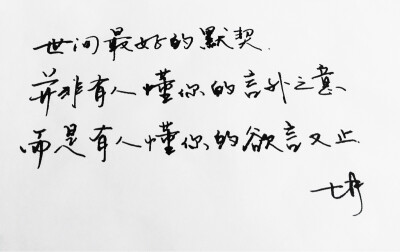 世间最好的默契.
并非有人懂你的言外之意、
而是有人懂你的欲言又止.